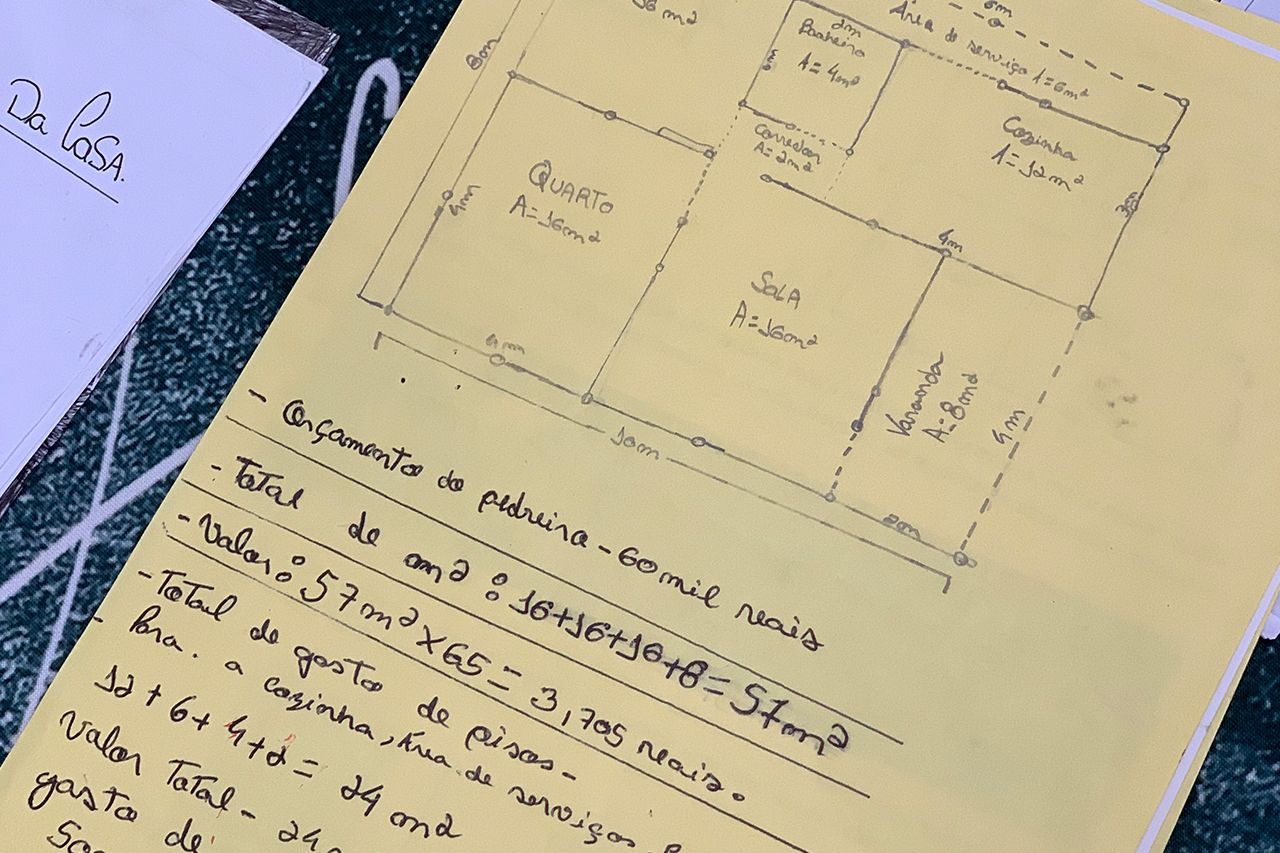 Da CaSA.
16 m²
8m
2m
Banheiro
A = 4m²
6m
Área de serviço A = 6m²
Corredor
A = 2m²
Cozinha
A = 12m²
3m
QUARTO
A = 16m²
4m
4m
SALA
A = 16m²
4m
Varanda
A = 8m²
4m
4m
10m
2m
- Orçamento do pedreiro - 60 mil reais
- Total de m² : 16+16+16+8 = 57m²
- Valor : 57m² x 65 = 3,705 reais.
- Total de gasto de pisos -
- Para. a cozinha, Área de serviços
12 + 6 + 4 + 2 = 24 m²
Valor Total - 24
gasto de